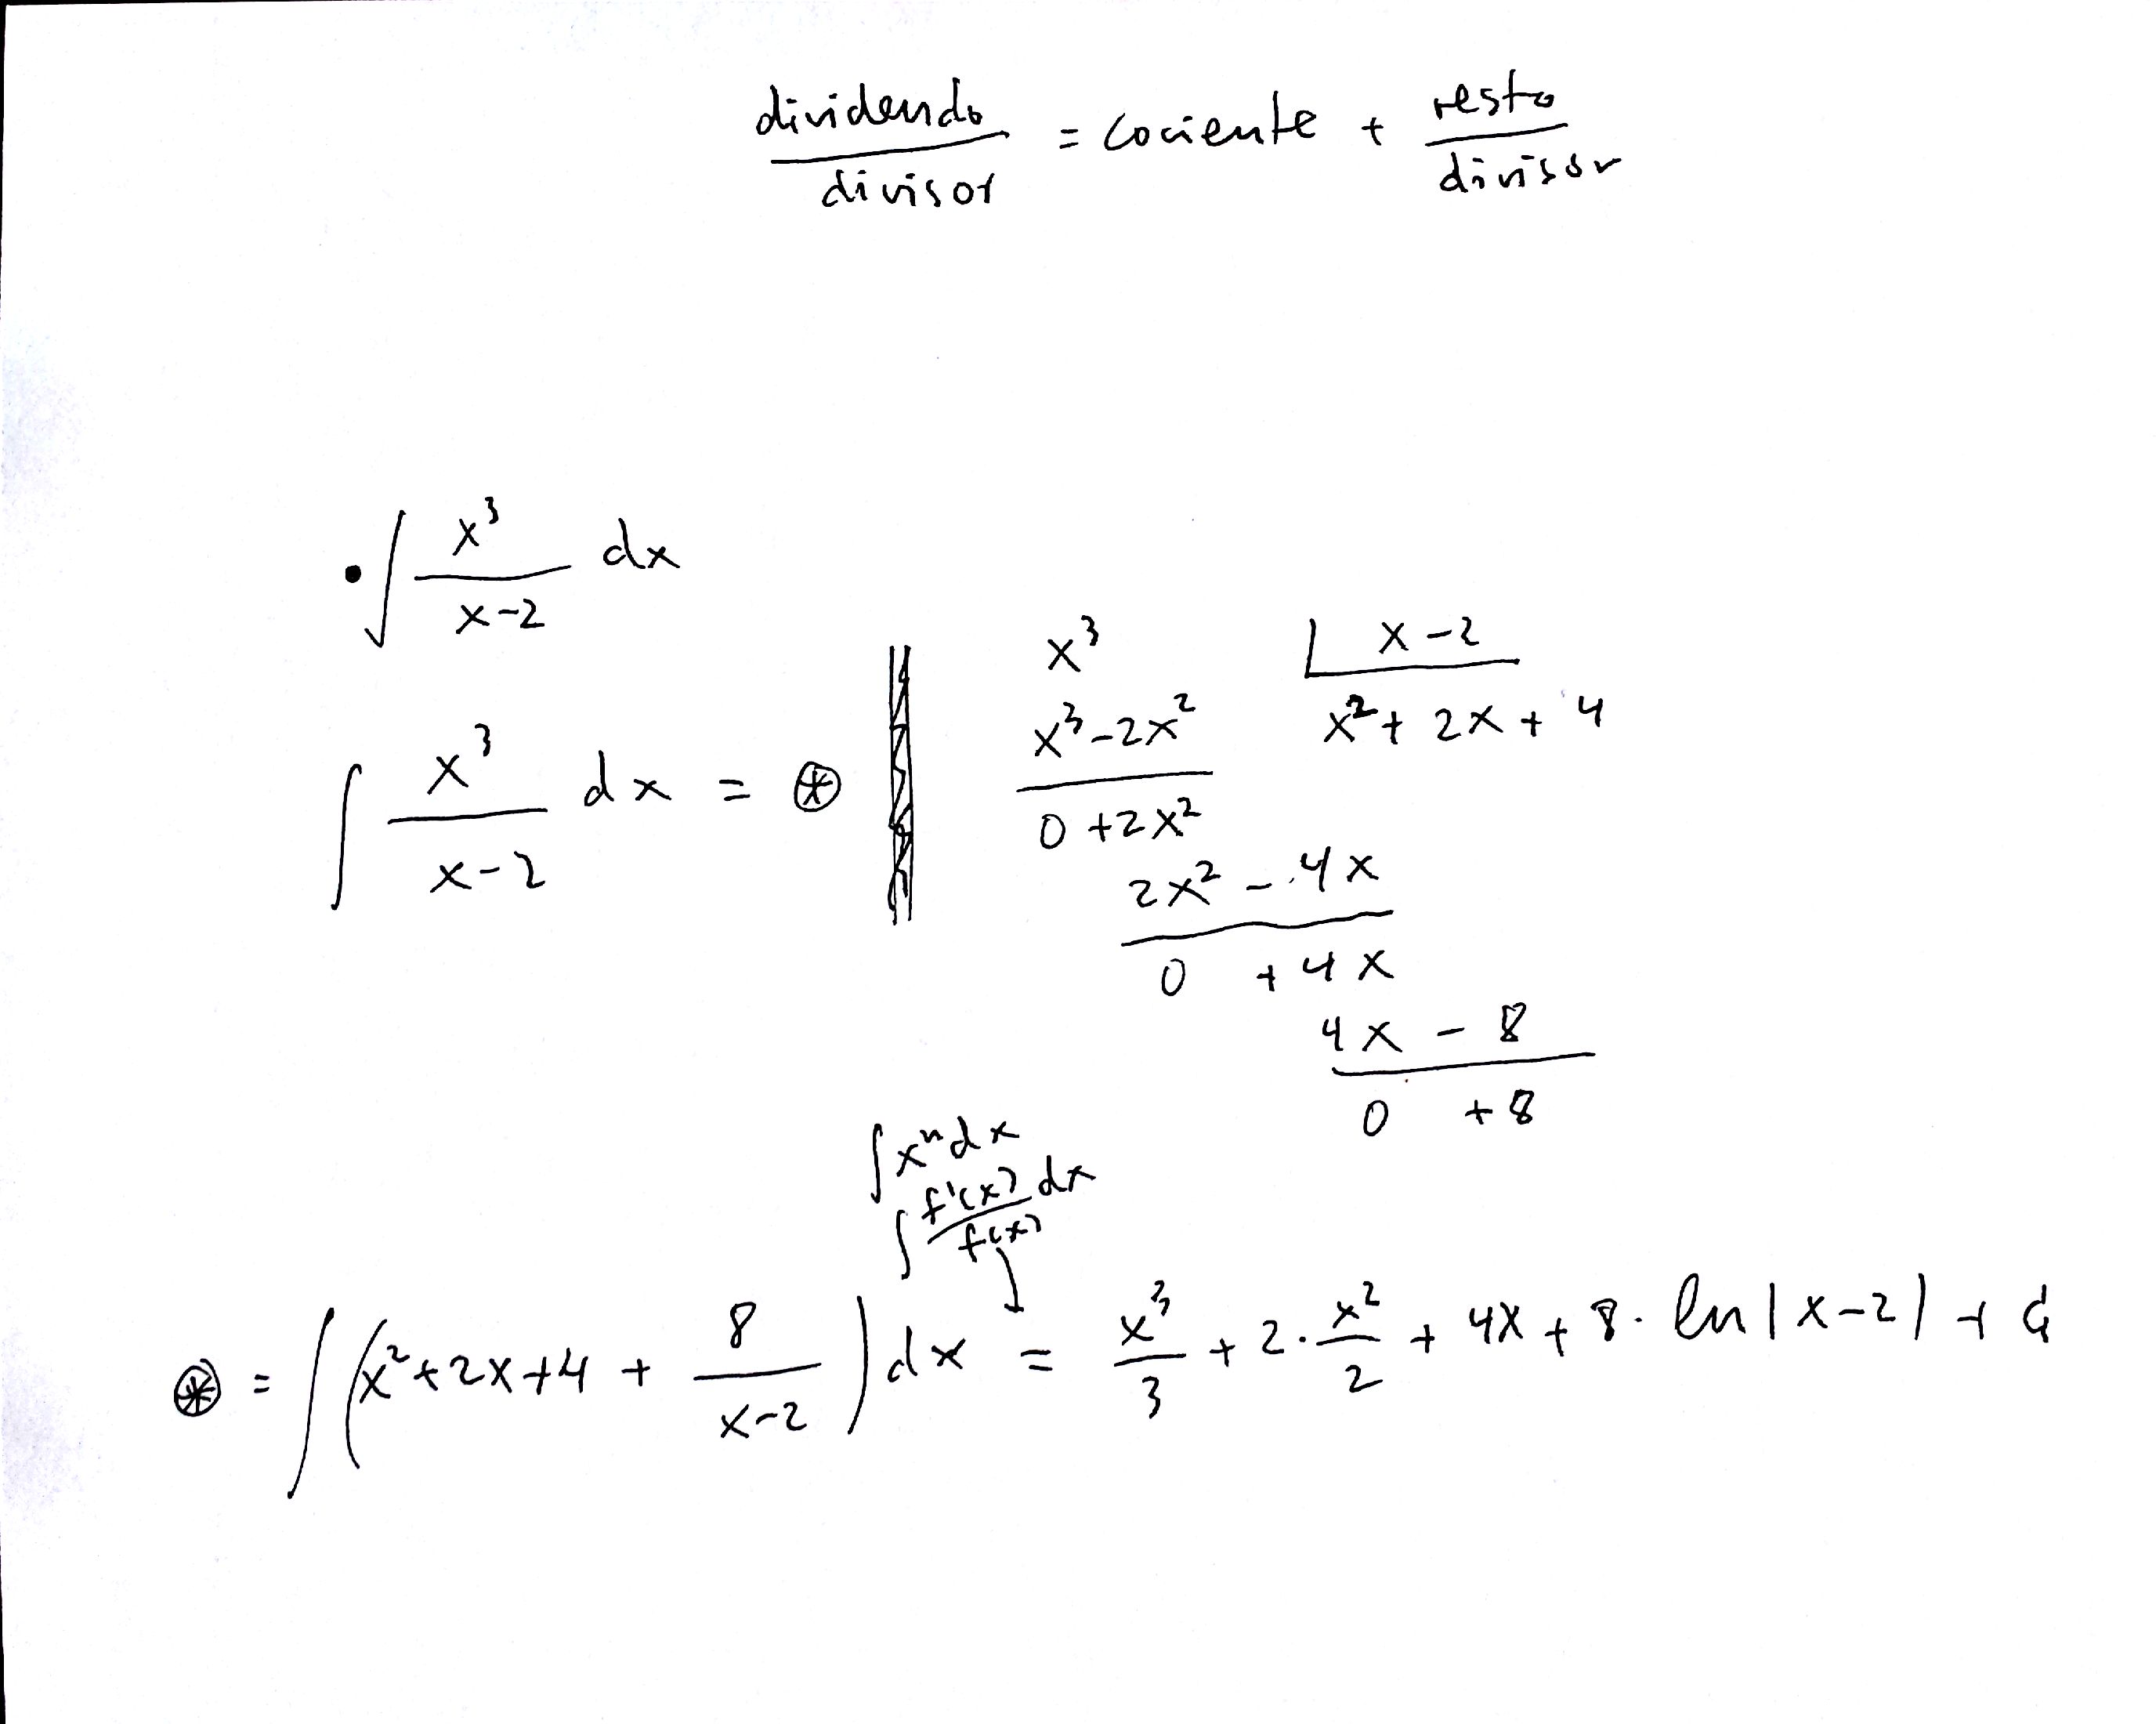 dividendo/divisor = cociente + resto/divisor
• ∫ x³/(x-2) dx
∫ x³/(x-2) dx = ⊛
x³ | x-2
x³-2x² x²+2x+4
0 +2x²
2x² - 4x
0 +4x
4x - 8
0 +8
∫xⁿdx
∫ f'(x)/f(x) dx
⊛ = ∫(x²+2x+4 + 8/(x-2)) dx = x³/3 + 2·x²/2 + 4x + 8·ln|x-2| + C